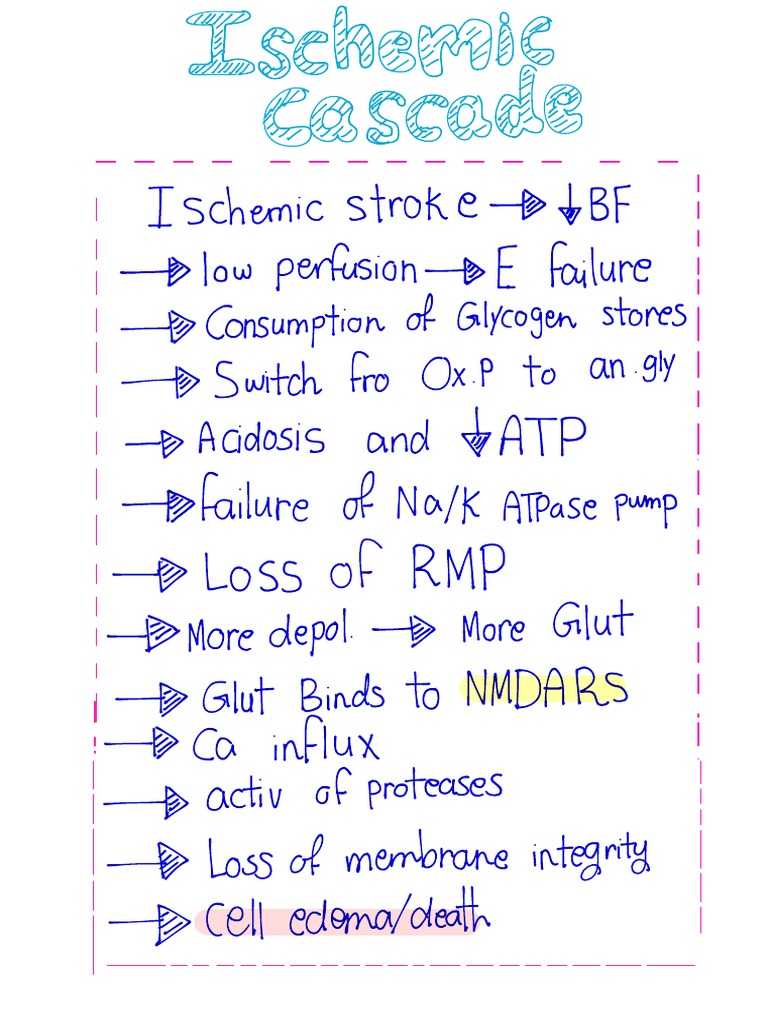 Ischemic
Cascade
Ischemic stroke → ↓BF
→ low perfusion → E failure
→ Consumption of Glycogen stores
→ Switch fro Ox.P to an.gly
→ Acidosis and ↓ATP
→ failure of Na/K ATPase pump
→ Loss of RMP
→ More depol. → More Glut
→ Glut Binds to NMDARS
→ Ca influx
→ activ of proteases
→ Loss of membrane integrity
→ cell edema/death